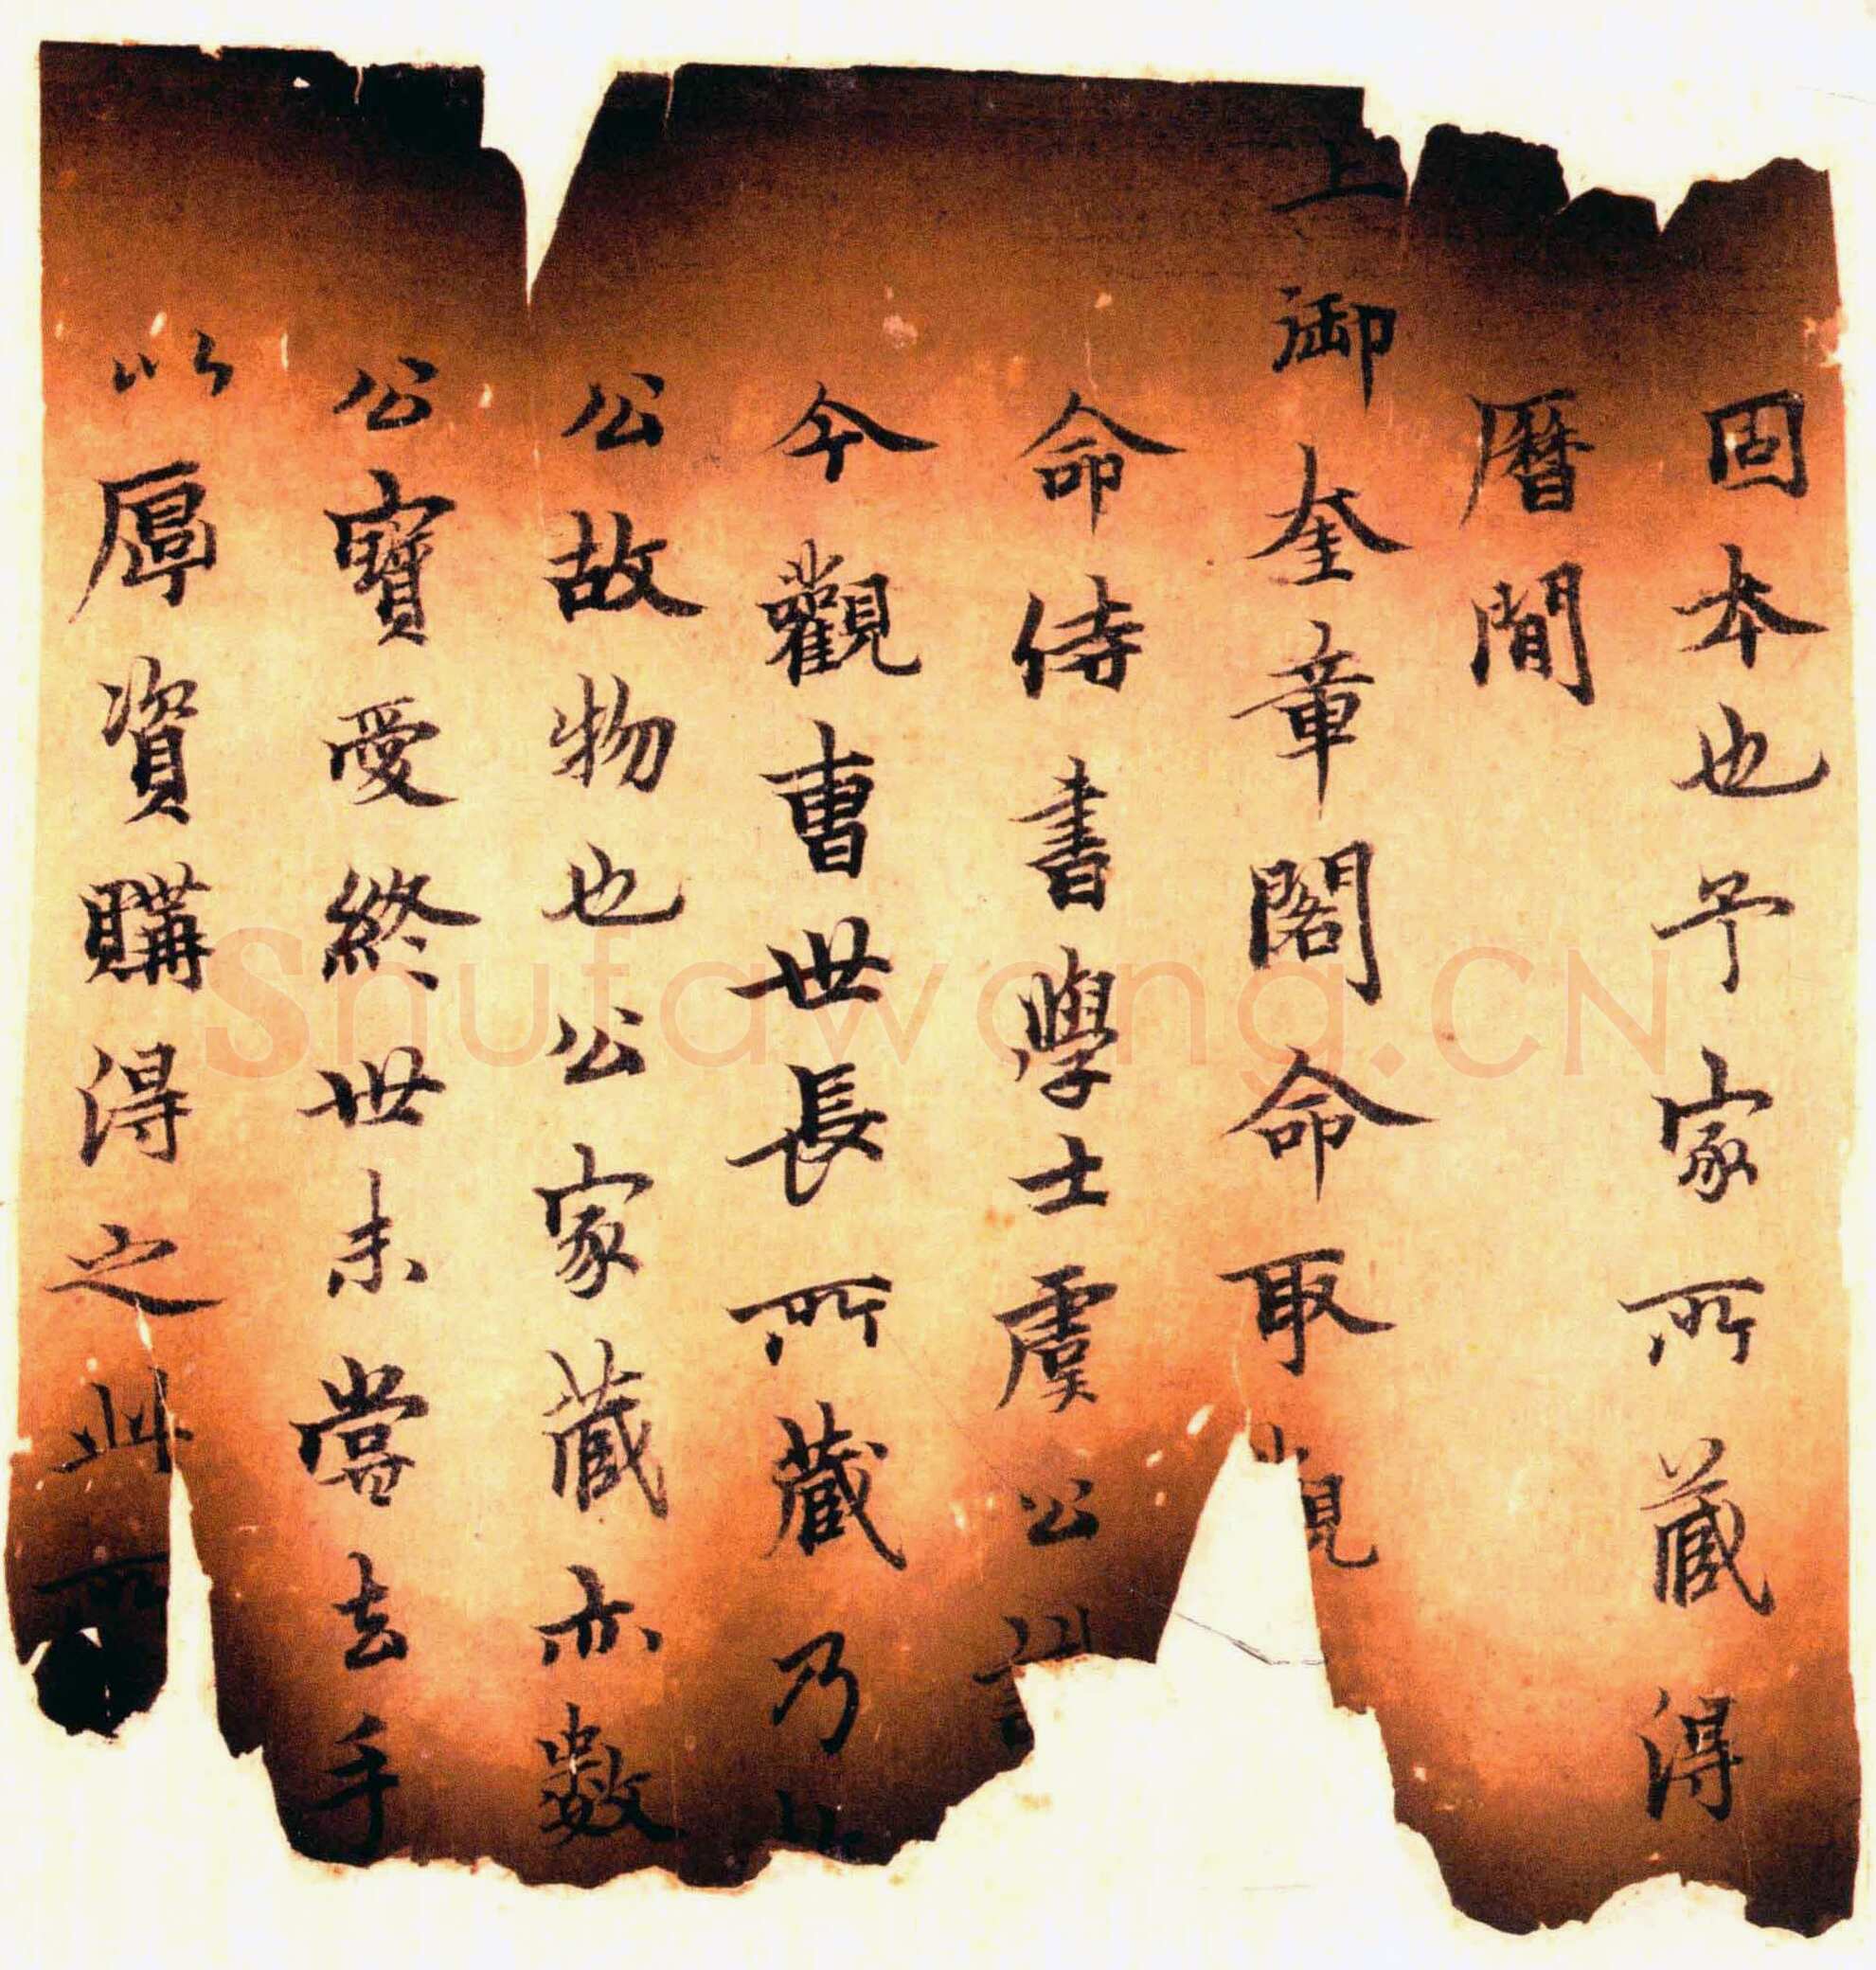 固本也予家所藏得
曆間
上御奎章閣命取觀
命侍書學士虞公
今觀曹世長所藏乃
公故物也公家藏亦數
公寶愛終世未嘗去手
以厚資購得之此所
Shufawang.CN